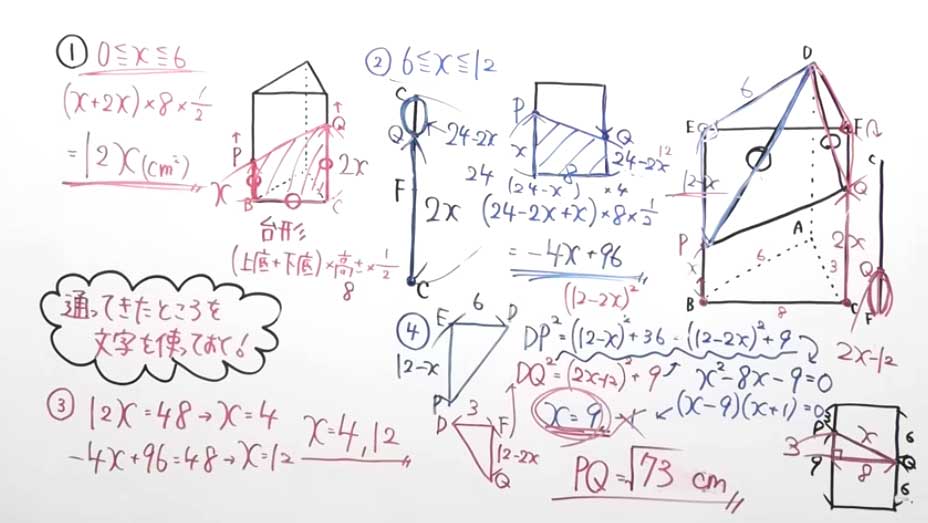 ① 0≦x≦6
(x+2x)×8×1/2
=12x(cm²)
P
Q
x
2x
B
C
台形
(上底+下底)×高さ×1/2
8
② 6≦x≦12
C
Q
24-2x
F
2x
C
24
P
Q
x
8
24-2x
12
(24-x)×4
(24-2x+x)×8×1/2
=-4x+96
D
6
E
F
12-x
P
Q
A
6
3
2x
x
B
8
C
C
Q
F
2x-12
通ってきたところを
文字を使っておく!
③ 12x=48→x=4
-4x+96=48→x=12
x=4,12
④
E
6
D
12-x
P
D
3
F
12-2x
Q
(12-2x)²
DP²=(12-x)²+36=(12-2x)²+9
DQ²=(2x-12)²+9
x²-8x-9=0
(x-9)(x+1)=0
x=9
PQ=√73 cm
3
P
x
6
3
9
8
Q
6